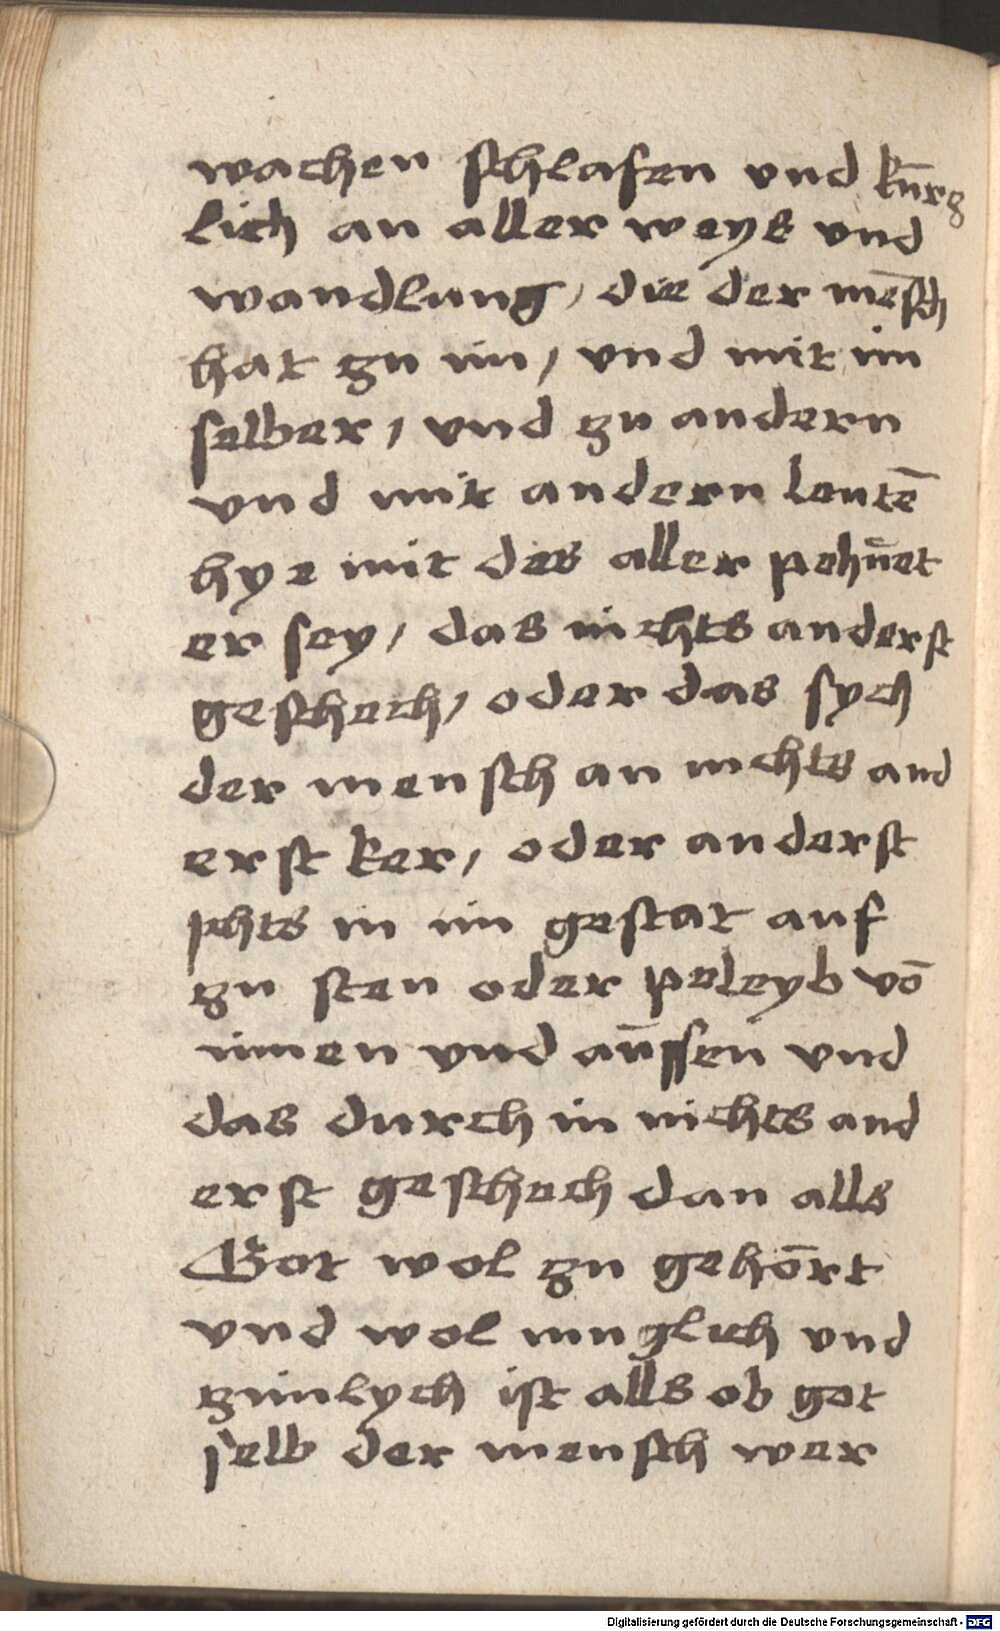 wachen schlafen und kürcz
lich an aller weys und
wandlung, die der mēsch
hat zu im, vnd mit im
selber, vnd zu andern
vnd mit andern leutē
hye mit des aller pehūet
er sey, das nichts anderst
geschech, oder das sych
der mensch an nichts and
erst ker, oder anderst
ichts in im gestat auf
zu sten oder peleyb vō
innen vnd aūssen vnd
das durch in nichts and
erst geschech dan alls
Got wol zu gehōrt
vnd wol muglich vnd
zimlych ist alls ob got
selb der mensch wer
Digitalisierung gefördert durch die Deutsche Forschungsgemeinschaft - DFG